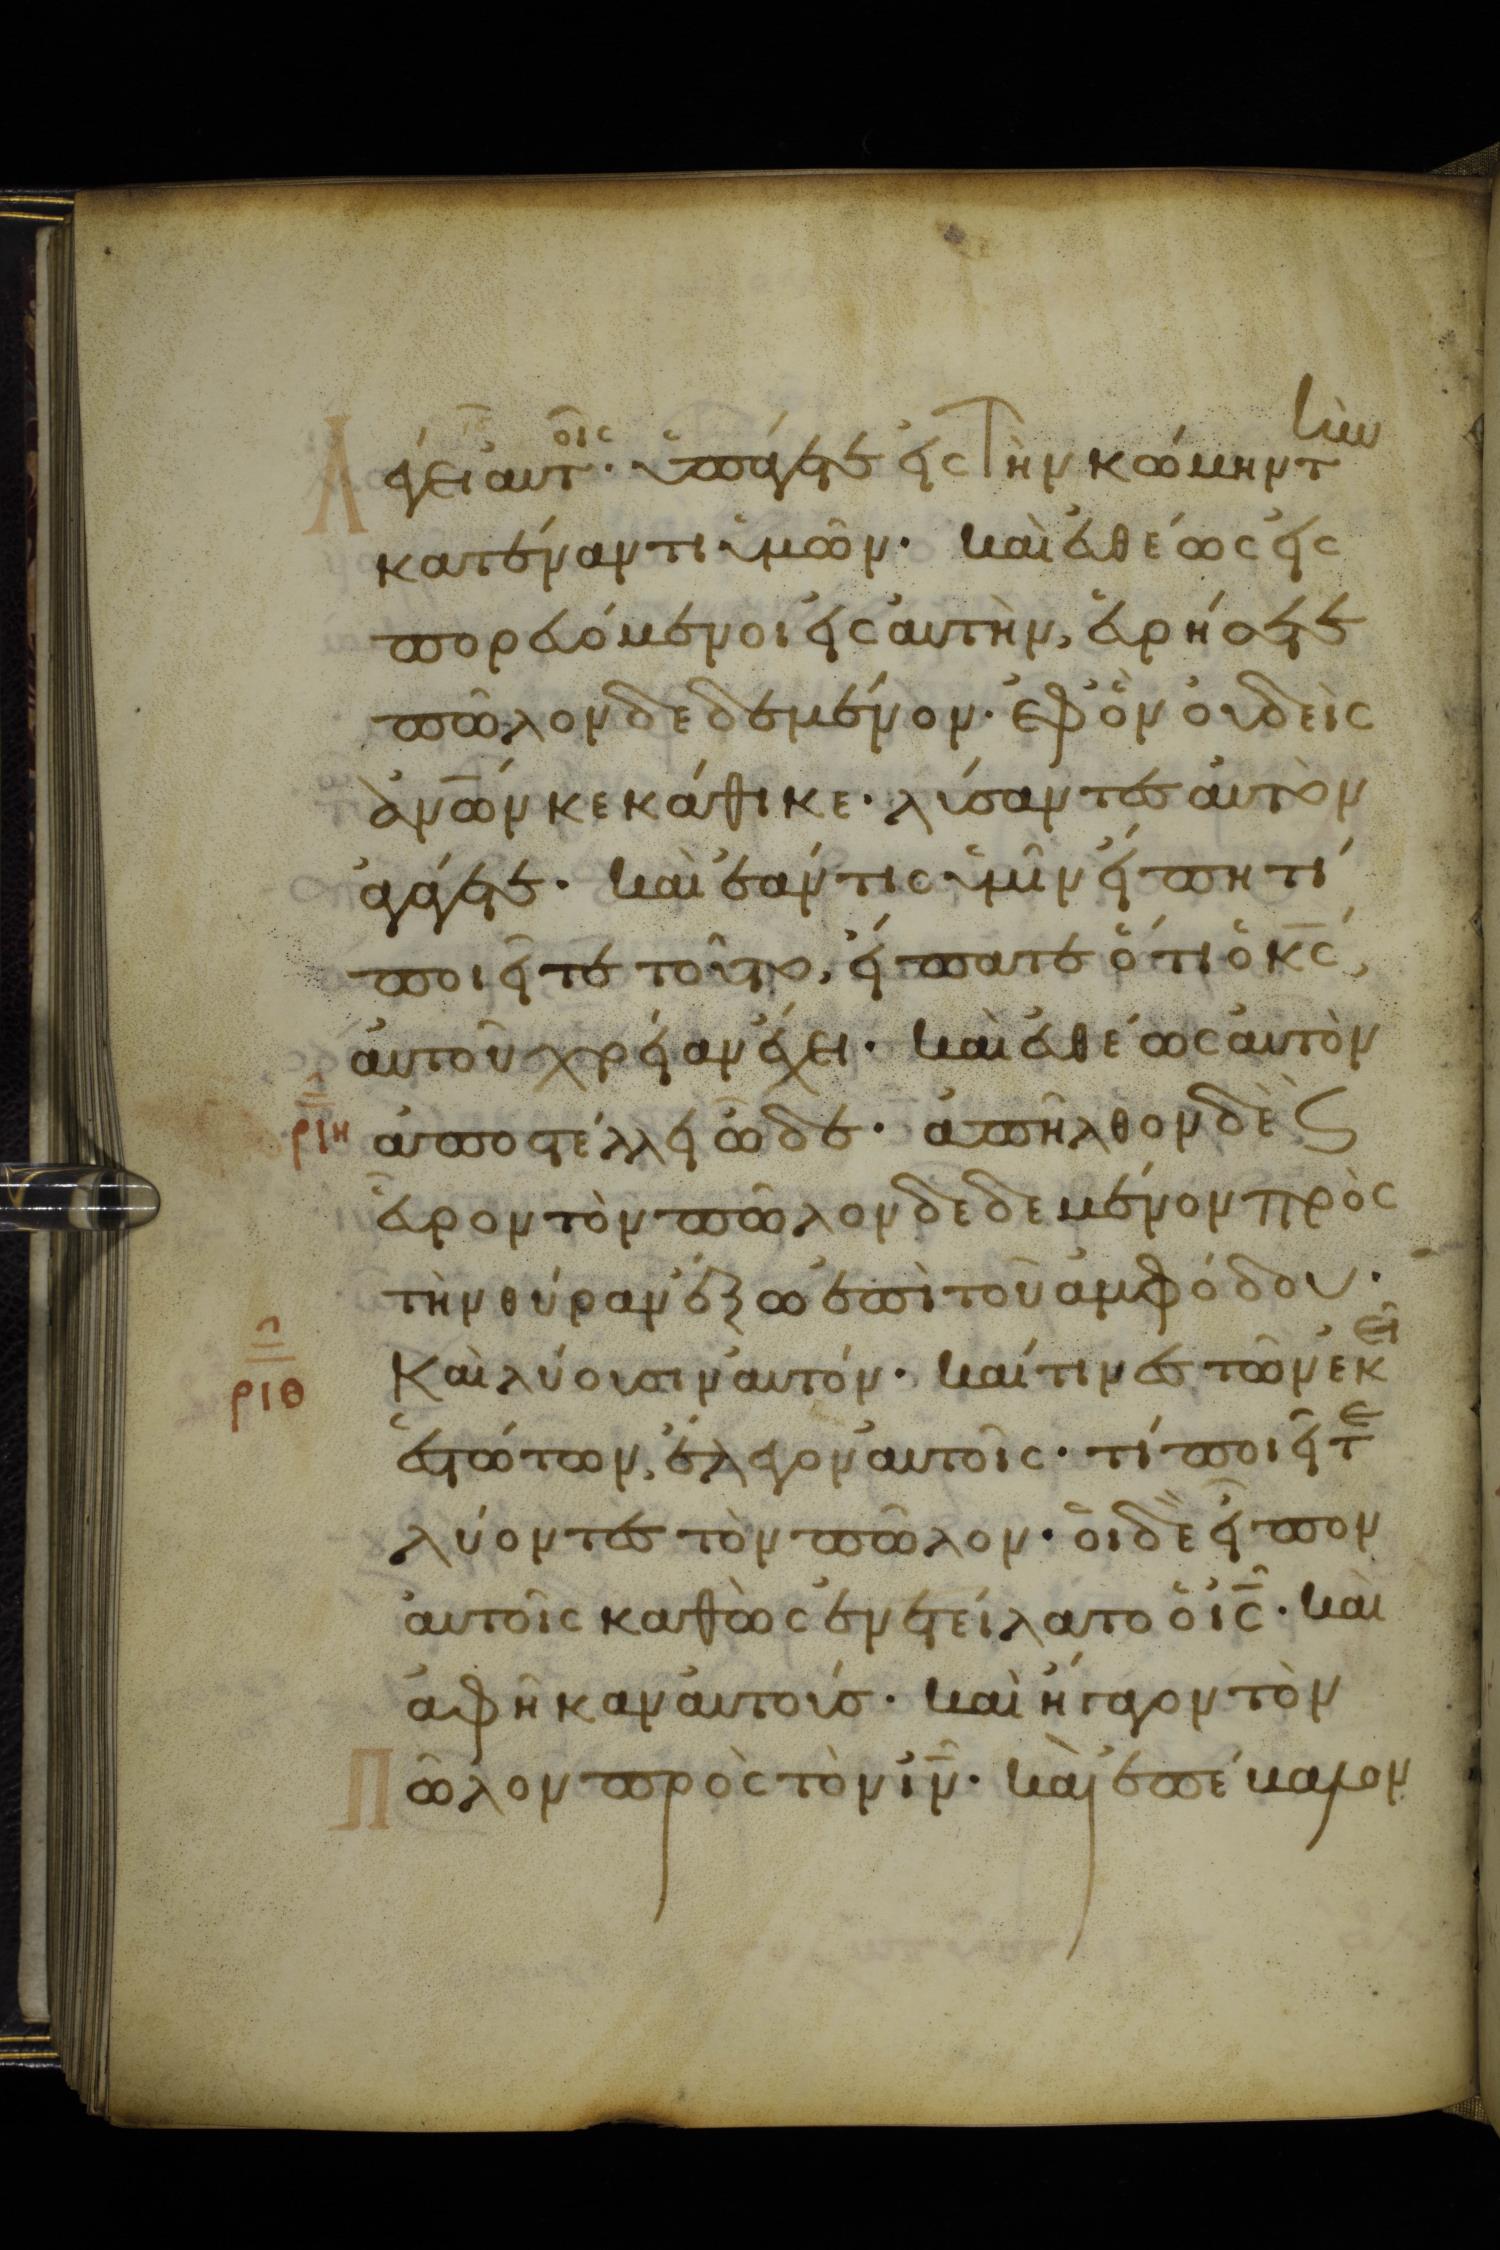 Λέγει αυτοις· ὑπάγετε εἰς Τὴν κώμην τὴν
κατέναντι ὑμῶν· καὶ εὐθέως εἰς
πορευόμενοι εἰς αυτὴν, εὑρήσετε
πῶλον δεδεμένον· ἐφ ὃν οὐδεὶς
ἀνω̅ν κεκάθικε· λύσαντες αὐτὸν
ἀγάγετε· καὶ ἐάν τις ὑμῖν εἴπη τί
ποιεῖτε τοῦτο, εἴπατε ὅτι ὁ κ̅ς,
ἀυτοῦ χρείαν ἔχει· καὶ εὐθέως ἀυτὸν
ριη ἀποστέλλει ὧδε· ἀπῆλθον δὲ ϛ
εὗρον τὸν πῶλον δεδεμένον πρὸς
τὴν θύραν ἔξω ἐπὶ τοῦ ἀμφόδου·
ριθ Καὶ λύουσιν ἀυτόν· καί τινες τῶν ἐκει
ἑστώτων, ἔλεγον ἀυτοῖς· τί ποιεῖτε
λύοντες τὸν πῶλον· ὁι δὲ εἶπον
ἀυτοῖς καθὼς ἐνετείλατο ὁ ἰ̅ς· καὶ
ἀφῆκαν ἀυτούσ· καὶ ἤγαγον τὸν
Πῶλον πρὸς τὸν ἰ̅ν· καὶ ἐπέβαλον